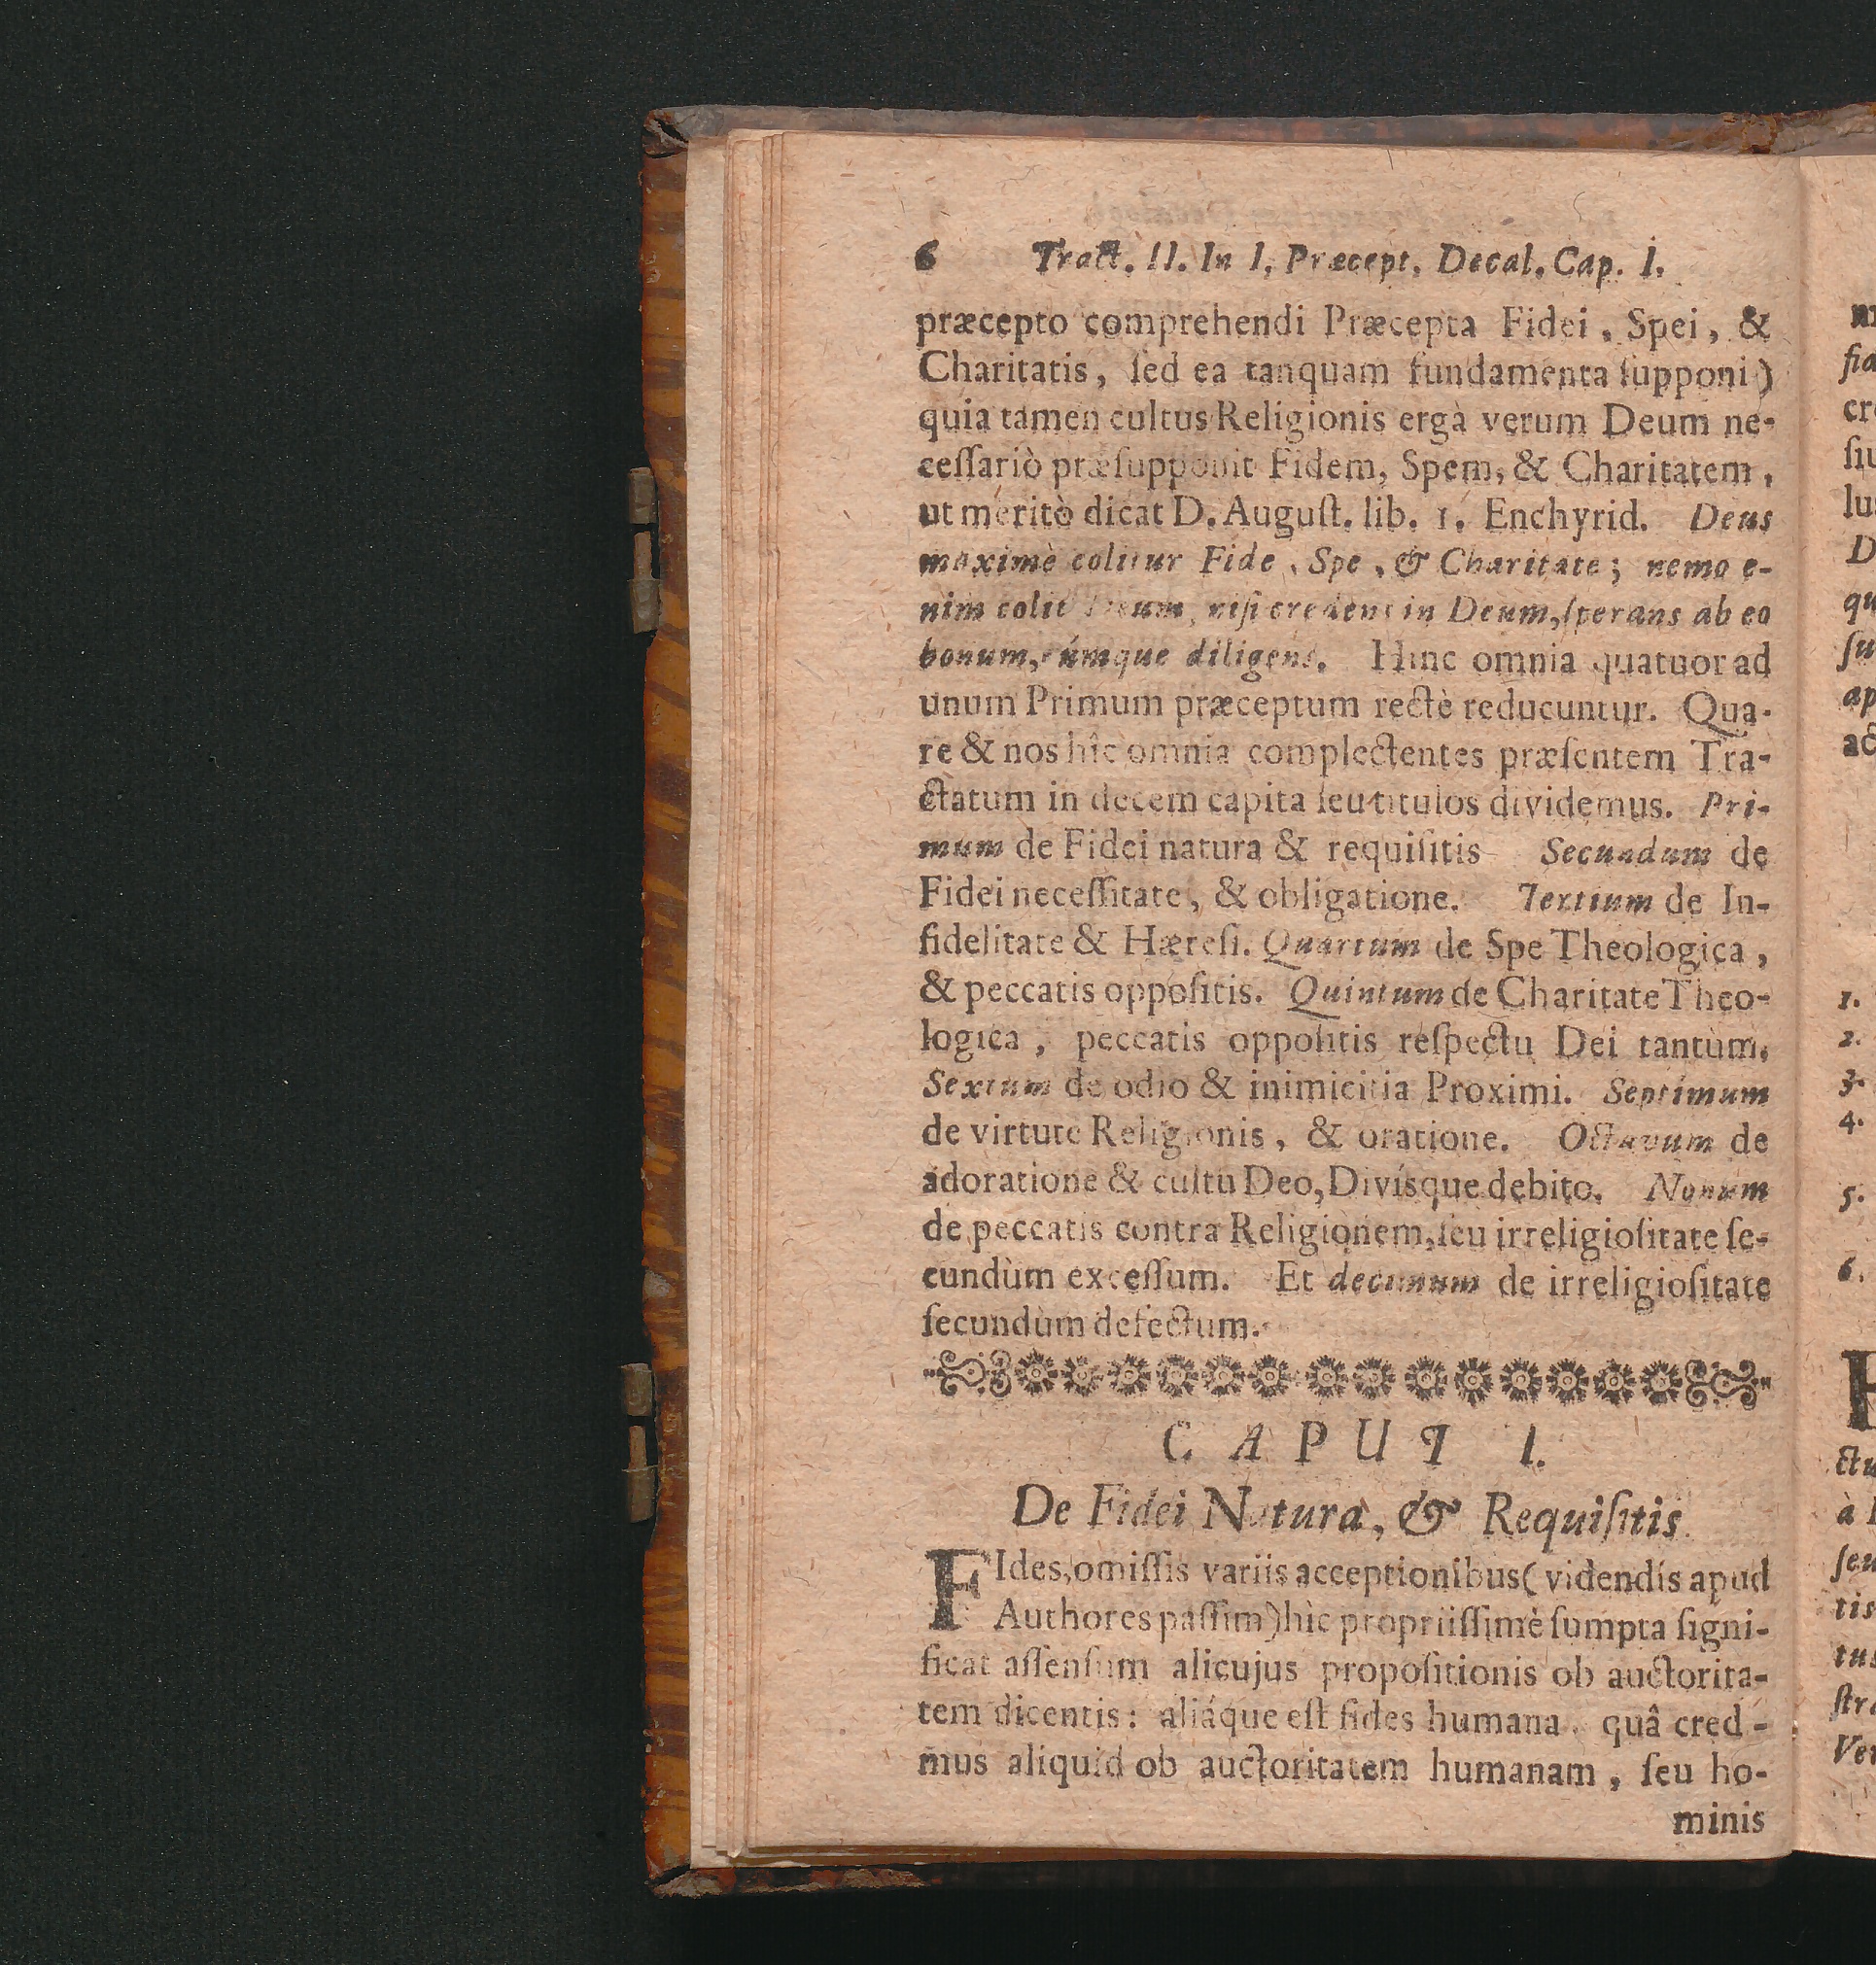 6 Tract. II. In I. Præcept. Decal. Cap. I.
præcepto comprehendi Præcepta Fidei, Spei, &
Charitatis, ſed ea tanquam fundamenta ſupponi)
quia tamen cultus Religionis ergà verum Deum ne-
ceſſariò præſupponit Fidem, Spem, & Charitatem,
ut meritò dicat D. Auguſt. lib. 1. Enchyrid. Deus
maximè colitur Fide, Spe, & Charitate; nemo e-
nim colit Deum, niſi credens in Deum, ſperans ab eo
bonum, eúmque diligens. Hinc omnia quatuor ad
unum Primum præceptum rectè reducuntur. Qua-
re & nos hîc omnia complectentes præſentem Tra-
ctatum in decem capita ſeu titulos dividemus. Pri-
mum de Fidei natura & requiſitis Secundum de
Fidei neceſſitate, & obligatione. Tertium de In-
fidelitate & Hæreſi. Quartum de Spe Theologica,
& peccatis oppoſitis. Quintum de Charitate Theo-
logica, peccatis oppoſitis reſpectu Dei tantùm.
Sextum de odio & inimicitia Proximi. Septimum
de virtute Religionis, & oratione. Octavum de
adoratione & cultu Deo, Divísque debito. Nonum
de peccatis contra Religionem, ſeu irreligioſitate ſe-
cundùm exceſſum. Et decimum de irreligioſitate
ſecundùm defectum.
CAPUT I.
De Fidei Natura, & Requiſitis.
FIdes, omiſſis variis acceptionibus (videndis apud
Authores paſſim) hìc propriiſſimè ſumpta ſigni-
ficat aſſenſum alicujus propoſitionis ob auctorita-
tem dicentis: aliáque eſt fides humana, quâ cred-
mus aliquid ob auctoritatem humanam, ſeu ho-
minis
fia
lus
D
qu
ſu
ap
1.
2.
3.
4.
5.
6.
ctu
ſeu
tis
tus
Ver